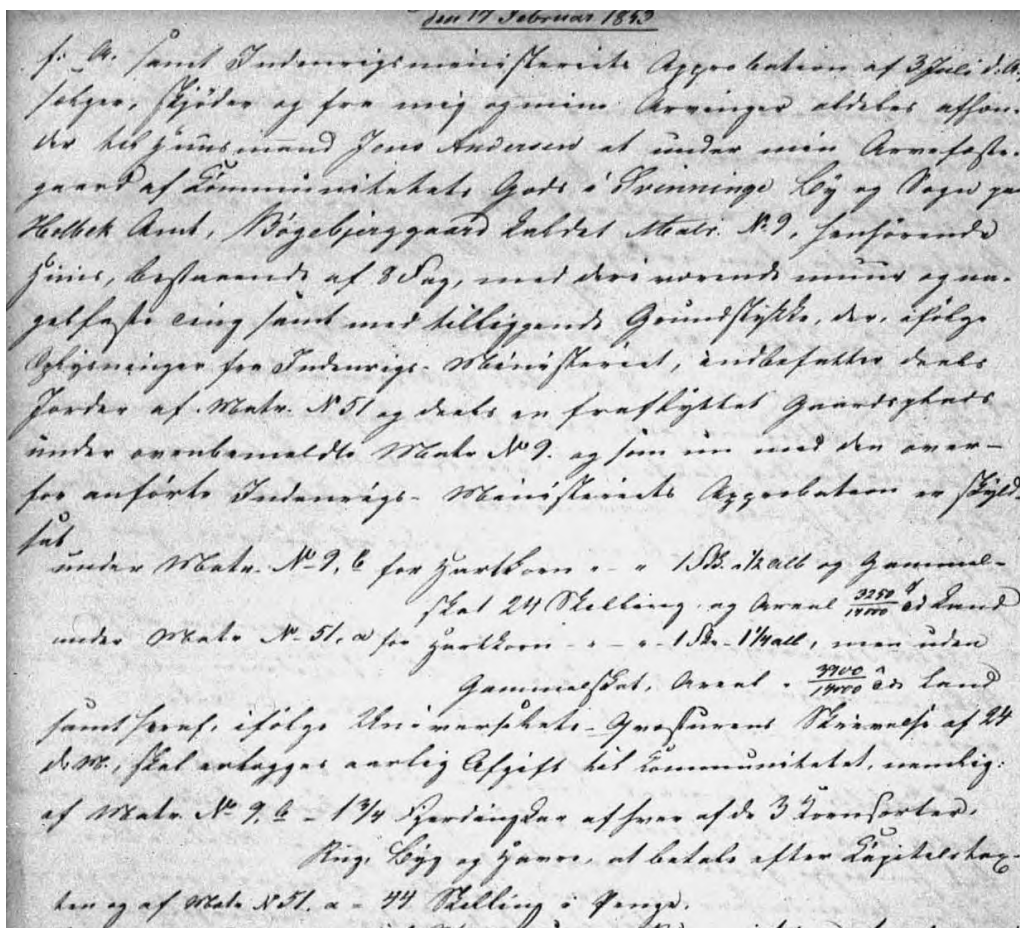 den 17 Februar 1853
f: A. samt Indenrigsministeriets Approbation af 3 Juli d. A,
sælger, skjøder og fra mig og mine Arvinger aldeles afhæn-
der til Huusmand Jens Andersen et under min Arvefæste-
gaard af Kommunitetets Gods i Svinninge By og Sogn
Holbek Amt, Bøgebjerggaard kaldet Matr. No. 9, henhørende
Huus, bestaaende af 8 Fag, med deri værende muur og na-
gelfaste Ting samt med tilliggende Grundstykke, der, ifølge
Oplysninger fra Indenrigs-Ministeriet, indbefatter deels
Jorder af Matr. N 51 og deels en fraflyttet Gaardsplads
under ovenbemeldte Matr No 9. og som nu med den oven-
for anførte Indenrigs-Ministeriets Approbation er skyld-
sat
under Matr. No 9, b for Hartkorn " - " 1 Fdk. " 1/2 alb og Gammel-
skat 24 Skilling og Areal 3250/14000 Td Land
under Matr No 51. a for Hartkorn - " - " 1 Fdk - 1 1/4 alb, men uden
Gammelskat, Areal " 3900/14000 Td. Land
samt hvoraf, ifølge Universitets-Qvæsturens Skrivelse af 24
d. M., skal erlægges aarlig Afgift til Kommunitetet, nemlig:
af Matr. No 9. b - 1 3/4 Fjerdingkar af hver af de 3 Kornsorter,
Rug, Byg og Havre, at betale efter Kapitelstax-
ten og af Matr N 51. a - 44 Skilling i Penge.